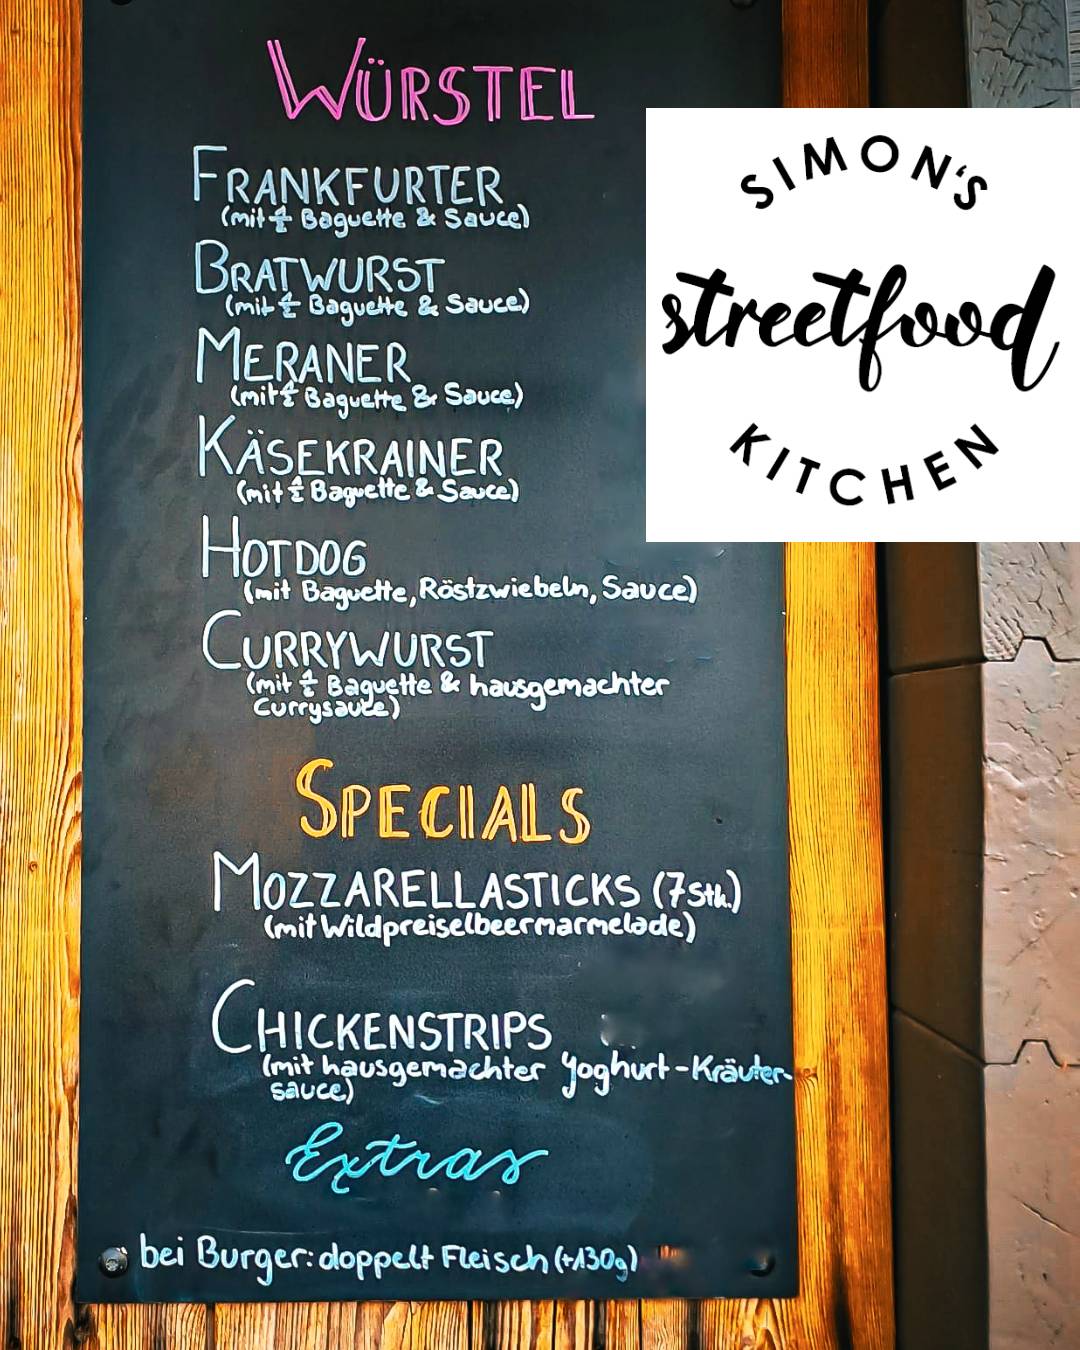 WÜRSTEL
FRANKFURTER
(mit ½ Baguette & Sauce)
BRATWURST
(mit ½ Baguette & Sauce)
MERANER
(mit ½ Baguette & Sauce)
KÄSEKRAINER
(mit ½ Baguette & Sauce)
HOTDOG
(mit Baguette, Röstzwiebeln, Sauce)
CURRYWURST
(mit ½ Baguette & hausgemachter
Currysauce)
SPECIALS
MOZZARELLASTICKS (7Stk.)
(mit Wildpreiselbeermarmelade)
CHICKENSTRIPS
(mit hausgemachter Yoghurt-Kräuter-
sauce)
Extras
bei Burger: doppelt Fleisch (+130g)
SIMON'S
streetfood
KITCHEN